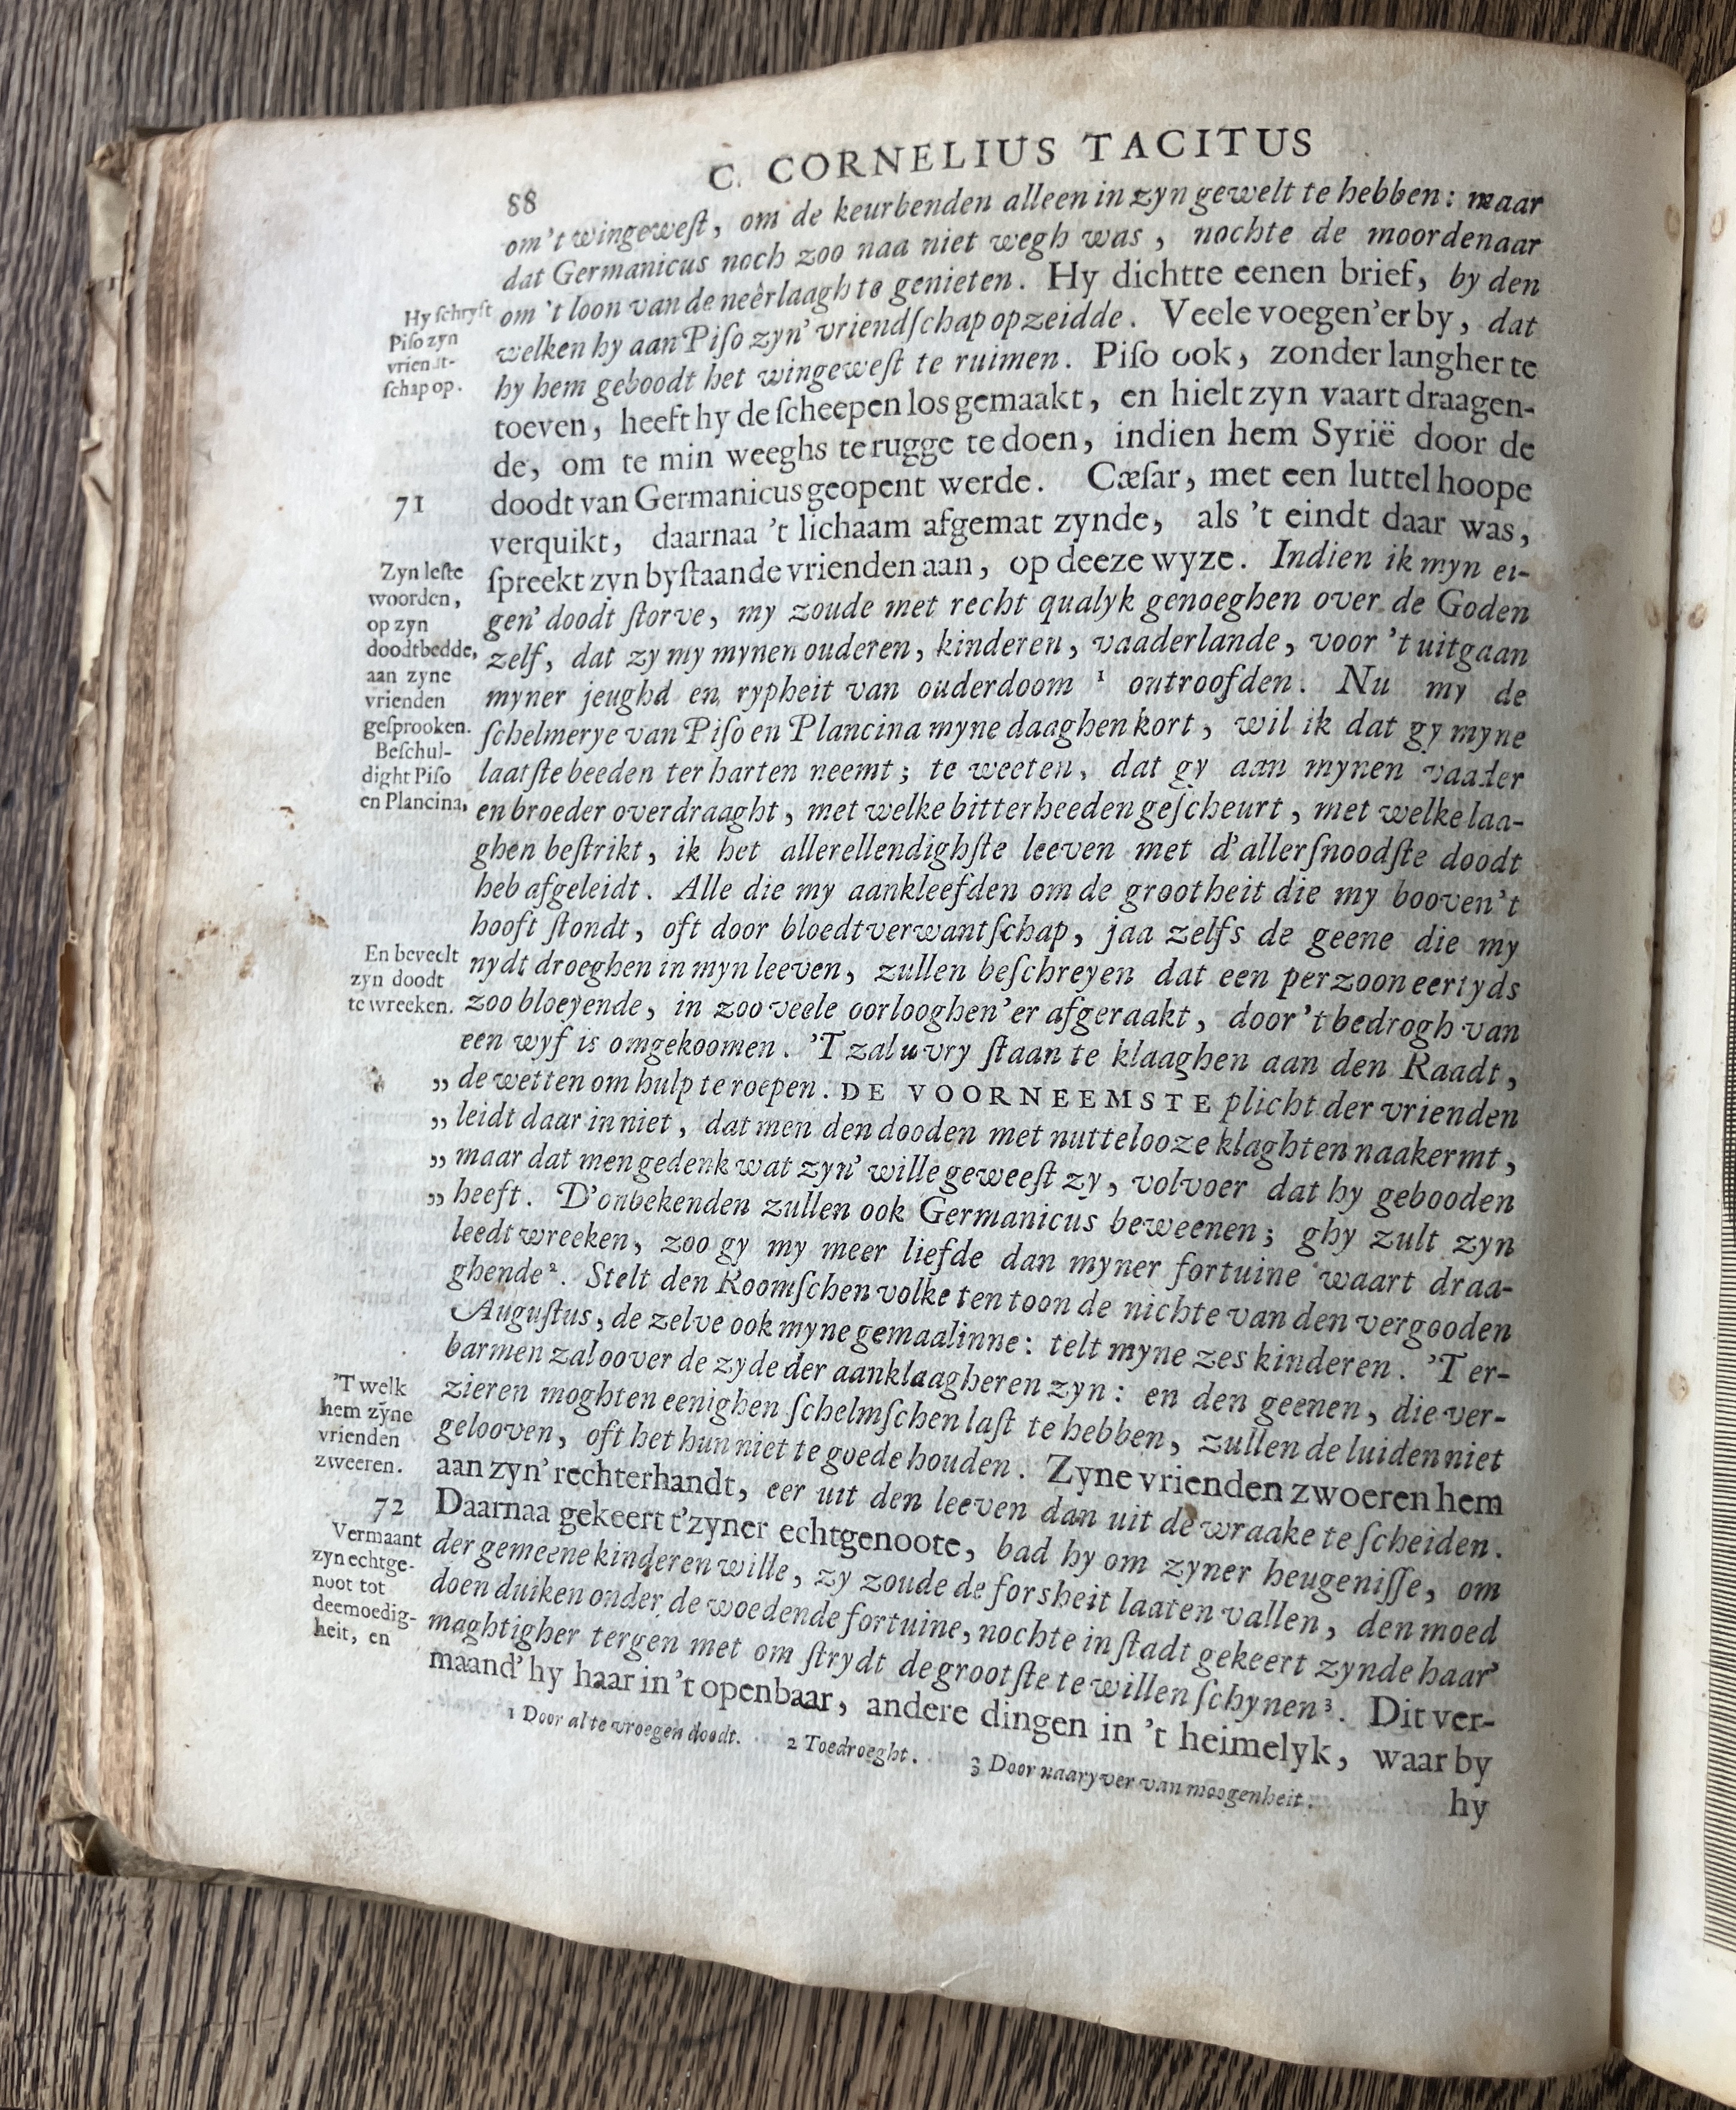 88
C. CORNELIUS TACITUS
om't wingeweſt, om de keurbenden alleen in zyn gewelt te hebben: maar
dat Germanicus noch zoo naa niet wegh was, nochte de moordenaar
om 't loon van de neêrlaagh te genieten. Hy dichtte eenen brief, by den
welken hy aan Piſo zyn' vriendſchap opzeidde. Veele voegen'er by, dat
hy hem geboodt het wingeweſt te ruimen. Piſo ook, zonder langher te
toeven, heeft hy de ſcheepen los gemaakt, en hielt zyn vaart draagen-
de, om te min weeghs te rugge te doen, indien hem Syrië door de
doodt van Germanicus geopent werde. Cæſar, met een luttel hoope
verquikt, daarnaa 't lichaam afgemat zynde, als 't eindt daar was,
ſpreekt zyn byſtaande vrienden aan, op deeze wyze. Indien ik myn ei-
gen' doodt ſtorve, my zoude met recht qualyk genoeghen over de Goden
zelf, dat zy my mynen ouderen, kinderen, vaaderlande, voor 't uitgaan
myner jeughd en rypheit van ouderdoom 1 ontroofden. Nu my de
ſchelmerye van Piſo en Plancina myne daaghen kort, wil ik dat gy myne
laatſte beeden ter harten neemt; te weeten, dat gy aan mynen vaader
en broeder overdraaght, met welke bitterheeden geſcheurt, met welke laa-
ghen beſtrikt, ik het allerellendighſte leeven met d'allerſnoodſte doodt
heb afgeleidt. Alle die my aankleefden om de grootheit die my booven't
hooft ſtondt, oft door bloedtverwantſchap, jaa zelfs de geene die my
nydt droeghen in myn leeven, zullen beſchreyen dat een perzoon eertyds
zoo bloeyende, in zoo veele oorlooghen'er afgeraakt, door 't bedrogh van
een wyf is omgekoomen. 'T zal u vry ſtaan te klaaghen aan den Raadt,
„ de wetten om hulp te roepen. DE VOORNEEMSTE plicht der vrienden
„ leidt daar in niet, dat men den dooden met nuttelooze klaghten naakermt,
„ maar dat men gedenk wat zyn' wille geweeſt zy, volvoer dat hy gebooden
„ heeft. D'onbekenden zullen ook Germanicus beweenen; ghy zult zyn
leedt wreeken, zoo gy my meer liefde dan myner fortuine waart draa-
ghende2. Stelt den Roomſchen volke ten toon de nichte van den vergooden
Auguſtus, de zelve ook myne gemaalinne: telt myne zes kinderen. 'T er-
barmen zal oover de zyde der aanklaagheren zyn: en den geenen, die ver-
zieren moghten eenighen ſchelmſchen laſt te hebben, zullen de luiden niet
gelooven, oft het hun niet te goede houden. Zyne vrienden zwoeren hem
aan zyn' rechterhandt, eer uit den leeven dan uit de wraake te ſcheiden.
Daarnaa gekeert t'zyner echtgenoote, bad hy om zyner heugeniſſe, om
der gemeene kinderen wille, zy zoude de forsheit laaten vallen, den moed
doen duiken onder de woedende fortuine, nochte in ſtadt gekeert zynde haar'
maghtigher tergen met om ſtrydt de grootſte te willen ſchynen3. Dit ver-
maand' hy haar in 't openbaar, andere dingen in 't heimelyk, waar by
hy
Hy ſchryft
Piſo zyn
vriendt-
ſchap op.
71
Zyn leſte
woorden,
op zyn
doodtbedde,
aan zyne
vrienden
geſprooken.
Beſchul-
dight Piſo
en Plancina,
En beveelt
zyn doodt
te wreeken.
'T welk
hem zyne
vrienden
zweeren.
72
Vermaant
zyn echtge-
noot tot
deemoedig-
heit, en
1 Door al te vroegen doodt. 2 Toedroeght. 3 Door naaryver van moogenheit.